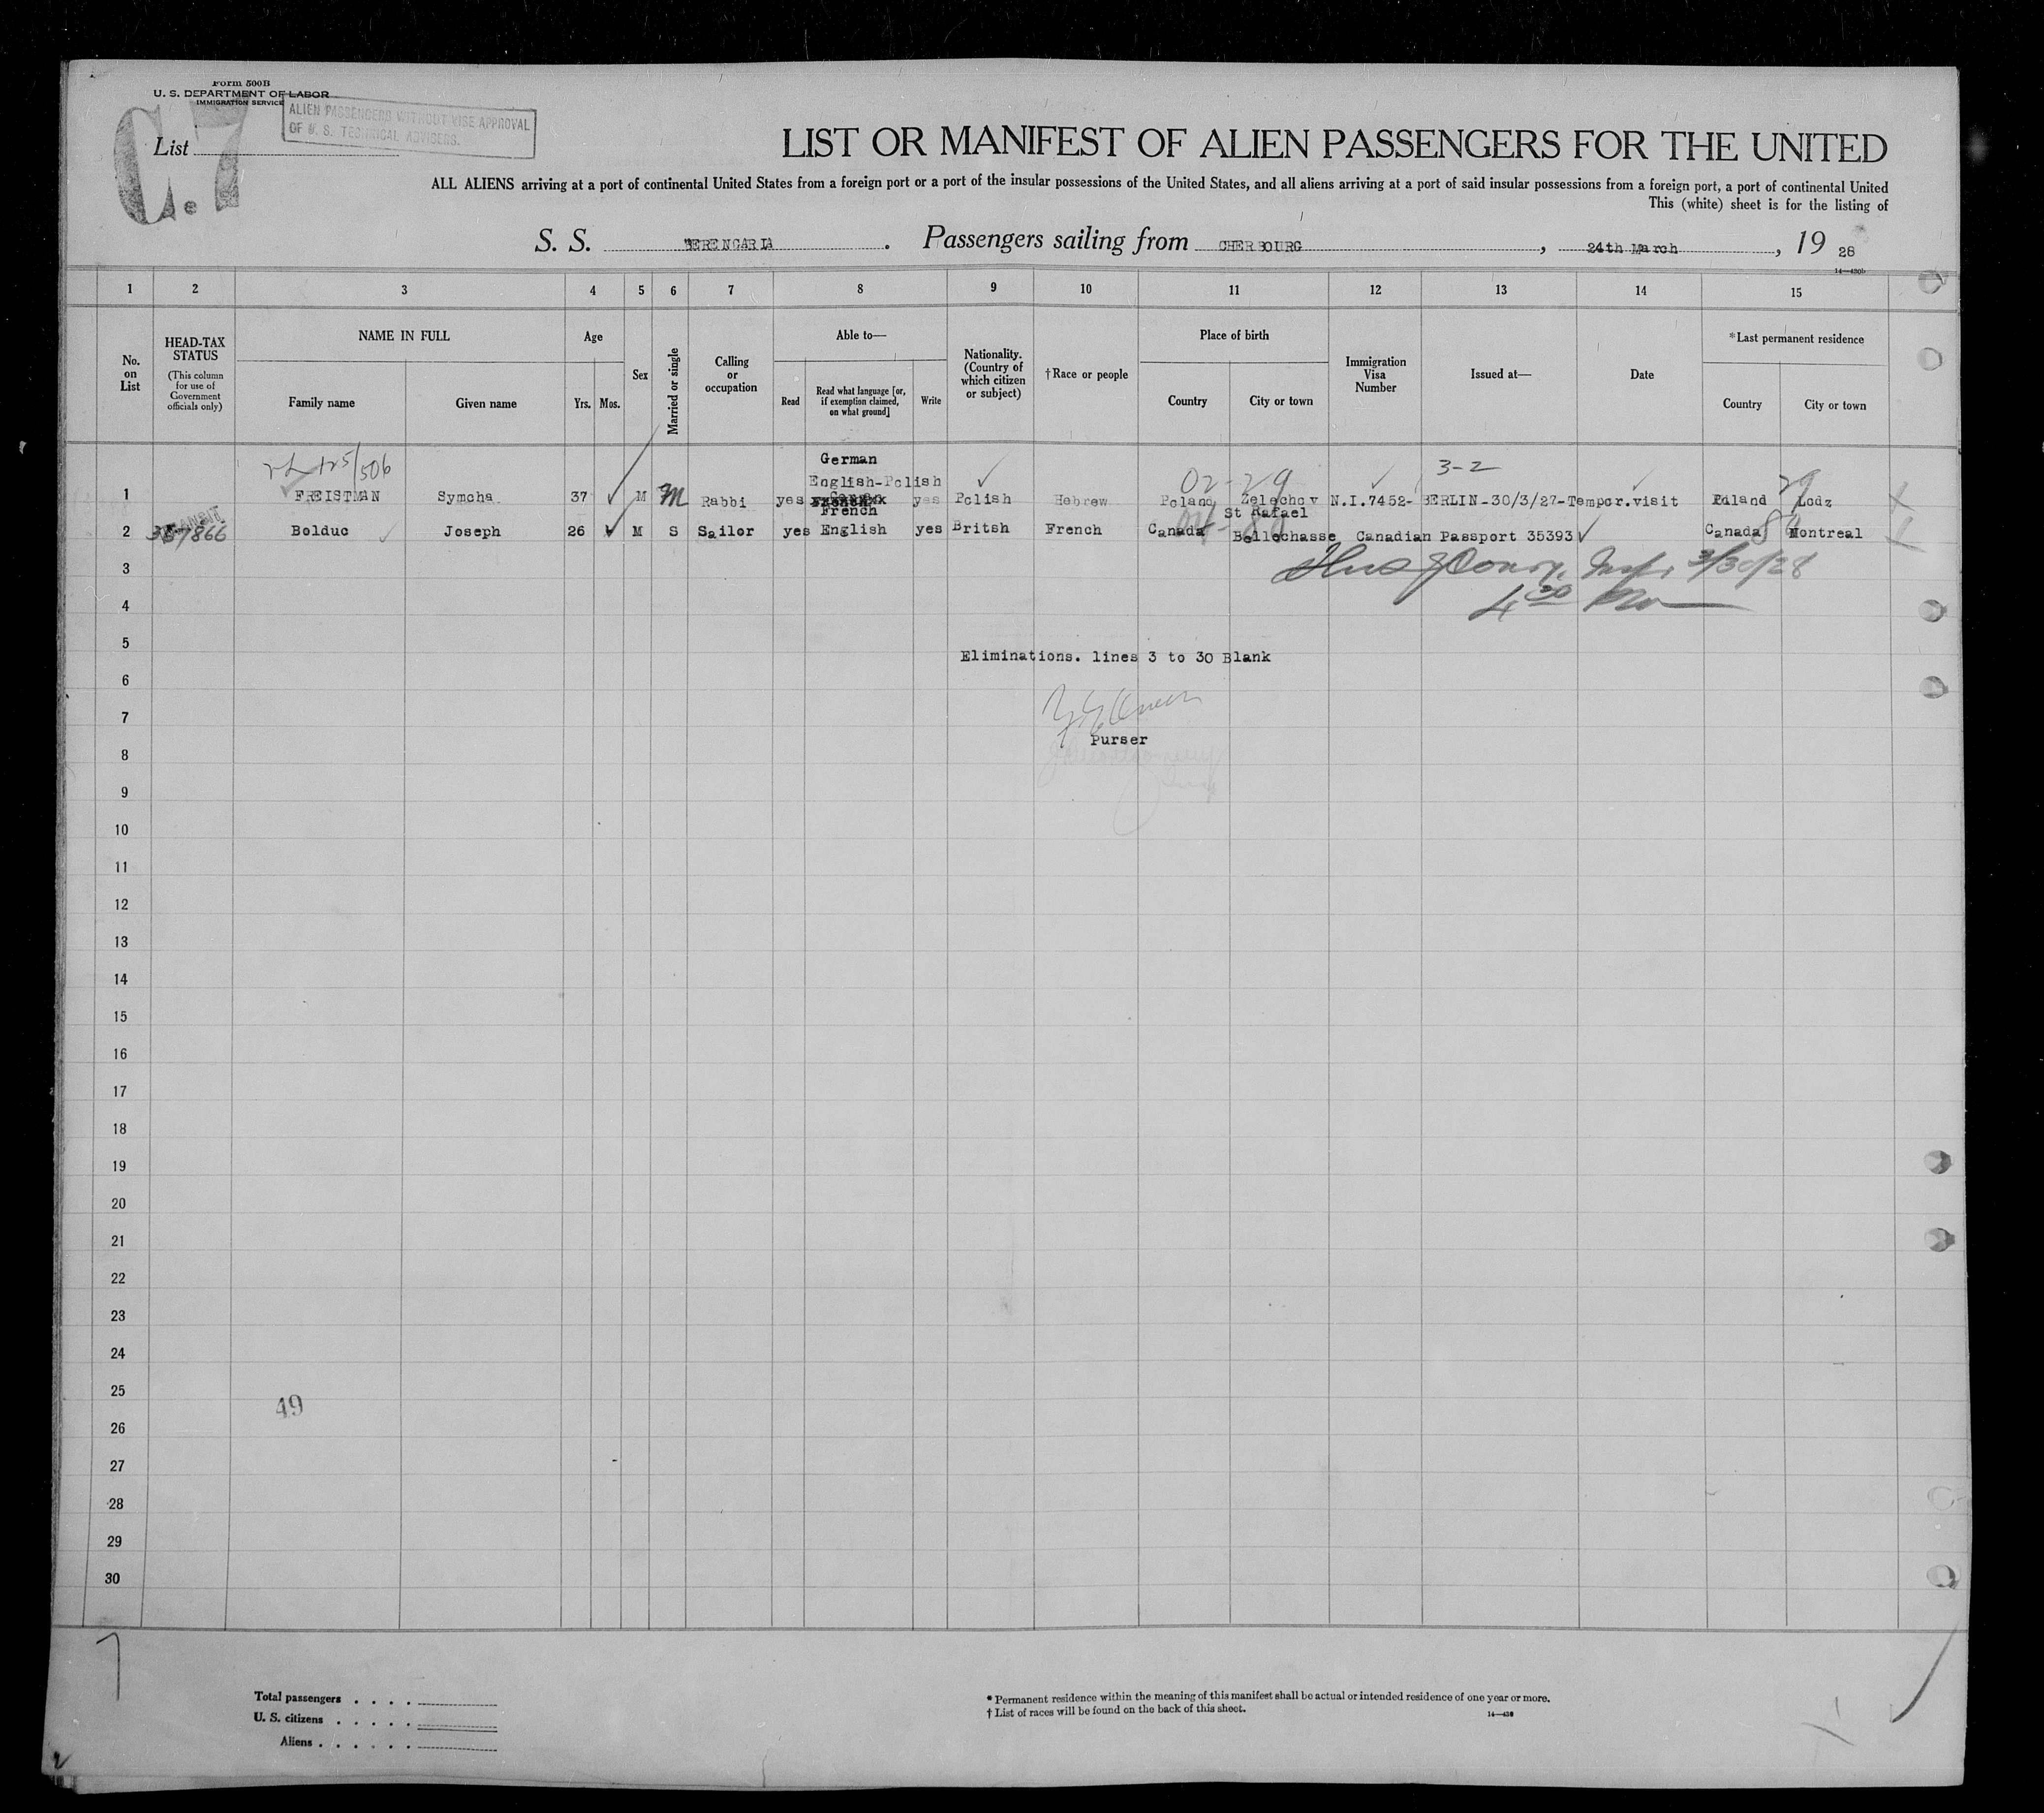 Form 500B
U. S. DEPARTMENT OF LABOR
IMMIGRATION SERVICE
ALIEN PASSENGERS WITHOUT VISE APPROVAL
OF U. S. TECHNICAL ADVISERS.
C.7
List
LIST OR MANIFEST OF ALIEN PASSENGERS FOR THE UNITED
ALL ALIENS arriving at a port of continental United States from a foreign port or a port of the insular possessions of the United States, and all aliens arriving at a port of said insular possessions from a foreign port, a port of continental United
This (white) sheet is for the listing of
S. S. BERENGARIA . Passengers sailing from CHERBOURG , 24th March , 19 28
14—430b
1 2 3 4 5 6 7 8 9 10 11 12 13 14 15
No. on List
HEAD-TAX STATUS
(This column for use of Government officials only)
NAME IN FULL
Family name Given name
Age
Yrs. Mos.
Sex
Married or single
Calling or occupation
Able to—
Read
Read what language [or, if exemption claimed, on what ground]
Write
Nationality. (Country of which citizen or subject)
†Race or people
Place of birth
Country City or town
Immigration Visa Number
Issued at—
Date
*Last permanent residence
Country City or town
125/506
German
3-2
English-Polish
02-29 29
1 FREISTMAN Symcha 37 M M Rabbi yes yes Polish Hebrew Poland Zelechov N.I.7452- BERLIN-30/3/27-Tempor.visit Poland Lodz
French
St Rafael
TRANSIT
2 357866 Bolduc Joseph 26 M S Sailor yes English yes Britsh French Canada Bellechasse Canadian Passport 35393 Canada Montreal
3 3/30/28
4 4 30
5 Eliminations. lines 3 to 30 Blank
6
7
Purser
8
9
10
11
12
13
14
15
16
17
18
19
20
21
22
23
24
25
49
26
27
28
29
30
Total passengers . . . .
U. S. citizens . . . . .
Aliens . . . . . .
* Permanent residence within the meaning of this manifest shall be actual or intended residence of one year or more.
† List of races will be found on the back of this sheet.
14—430